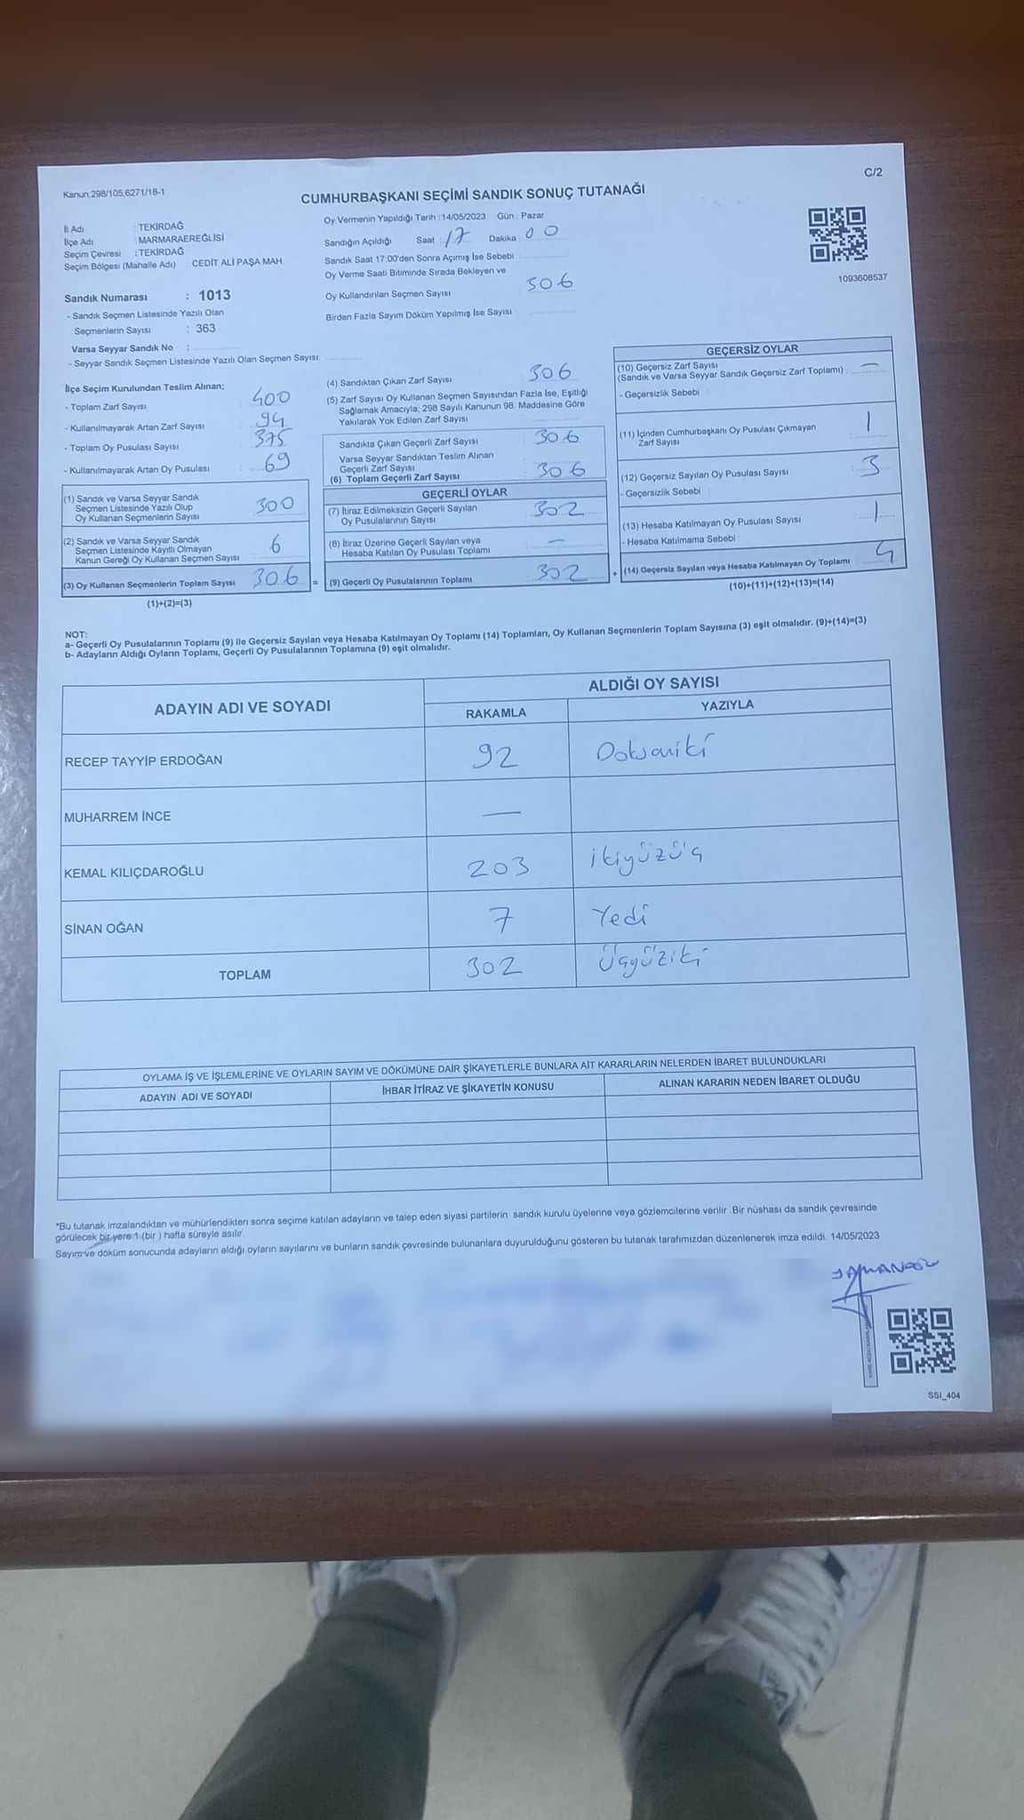 Kanun 298/105,6271/18-1
C/2
CUMHURBAŞKANI SEÇİMİ SANDIK SONUÇ TUTANAĞI
İl Adı : TEKİRDAĞ
İlçe Adı : MARMARAEREĞLİSİ
Seçim Çevresi : TEKİRDAĞ
Seçim Bölgesi (Mahalle Adı) CEDİT ALİ PAŞA MAH
Sandık Numarası : 1013
- Sandık Seçmen Listesinde Yazılı Olan
Seçmenlerin Sayısı : 363
Varsa Seyyar Sandık No :
- Seyyar Sandık Seçmen Listesinde Yazılı Olan Seçmen Sayısı:
Oy Vermenin Yapıldığı Tarih : 14/05/2023 Gün : Pazar
Sandığın Açıldığı Saat 17 Dakika 00
Sandık Saat 17:00'den Sonra Açımış İse Sebebi
Oy Verme Saati Bitiminde Sırada Bekleyen ve
Oy Kullandırılan Seçmen Sayısı 306
Birden Fazla Sayım Döküm Yapılmış İse Sayısı
1093608537
İlçe Seçim Kurulundan Teslim Alınan;
- Toplam Zarf Sayısı 400
- Kullanılmayarak Artan Zarf Sayısı 94
- Toplam Oy Pusulası Sayısı 375
- Kullanılmayarak Artan Oy Pusulası 69
(1) Sandık ve Varsa Seyyar Sandık
Seçmen Listesinde Yazılı Olup
Oy Kullanan Seçmenlerin Sayısı 300
(2) Sandık ve Varsa Seyyar Sandık
Seçmen Listesinde Kayıtlı Olmayan
Kanun Gereği Oy Kullanan Seçmen Sayısı 6
(3) Oy Kullanan Seçmenlerin Toplam Sayısı 306
(1)+(2)=(3)
=
(4) Sandıktan Çıkan Zarf Sayısı 306
(5) Zarf Sayısı Oy Kullanan Seçmen Sayısından Fazla İse, Eşitliği
Sağlamak Amacıyla; 298 Sayılı Kanunun 98. Maddesine Göre
Yakılarak Yok Edilen Zarf Sayısı
Sandıkta Çıkan Geçerli Zarf Sayısı 306
Varsa Seyyar Sandıktan Teslim Alınan
Geçerli Zarf Sayısı
(6) Toplam Geçerli Zarf Sayısı 306
GEÇERLİ OYLAR
(7) İtiraz Edilmeksizin Geçerli Sayılan
Oy Pusulalarının Sayısı 302
(8) İtiraz Üzerine Geçerli Sayılan veya
Hesaba Katılan Oy Pusulası Toplamı —
(9) Geçerli Oy Pusulalarının Toplamı 302
+
GEÇERSİZ OYLAR
(10) Geçersiz Zarf Sayısı
(Sandık ve Varsa Seyyar Sandık Geçersiz Zarf Toplamı) —
- Geçersizlik Sebebi
(11) İçinden Cumhurbaşkanı Oy Pusulası Çıkmayan
Zarf Sayısı 1
(12) Geçersiz Sayılan Oy Pusulası Sayısı 3
- Geçersizlik Sebebi
(13) Hesaba Katılmayan Oy Pusulası Sayısı 1
- Hesaba Katılmama Sebebi
(14) Geçersiz Sayılan veya Hesaba Katılmayan Oy Toplamı 4
(10)+(11)+(12)+(13)=(14)
NOT:
a- Geçerli Oy Pusulalarının Toplamı (9) ile Geçersiz Sayılan veya Hesaba Katılmayan Oy Toplamı (14) Toplamları, Oy Kullanan Seçmenlerin Toplam Sayısına (3) eşit olmalıdır. (9)+(14)=(3)
b- Adayların Aldığı Oyların Toplamı, Geçerli Oy Pusulalarının Toplamına (9) eşit olmalıdır.
ADAYIN ADI VE SOYADI
ALDIĞI OY SAYISI
RAKAMLA YAZIYLA
RECEP TAYYİP ERDOĞAN 92 Doksaniki
MUHARREM İNCE —
KEMAL KILIÇDAROĞLU 203 ikiyüzüç
SİNAN OĞAN 7 Yedi
TOPLAM 302 Üçyüziki
OYLAMA İŞ VE İŞLEMLERİNE VE OYLARIN SAYIM VE DÖKÜMÜNE DAİR ŞİKAYETLERLE BUNLARA AİT KARARLARIN NELERDEN İBARET BULUNDUKLARI
ADAYIN ADI VE SOYADI İHBAR İTİRAZ VE ŞİKAYETİN KONUSU ALINAN KARARIN NEDEN İBARET OLDUĞU
*Bu tutanak imzalandıktan ve mühürlendikten sonra seçime katılan adayların ve talep eden siyasi partilerin sandık kurulu üyelerine veya gözlemcilerine verilir. Bir nüshası da sandık çevresinde
görülecek bir yere 1 (bir) hafta süreyle asılır.
Sayım ve döküm sonucunda adayların aldığı oyların sayılarını ve bunların sandık çevresinde bulunanlara duyurulduğunu gösteren bu tutanak tarafımızdan düzenlenerek imza edildi. 14/05/2023
SSI_404